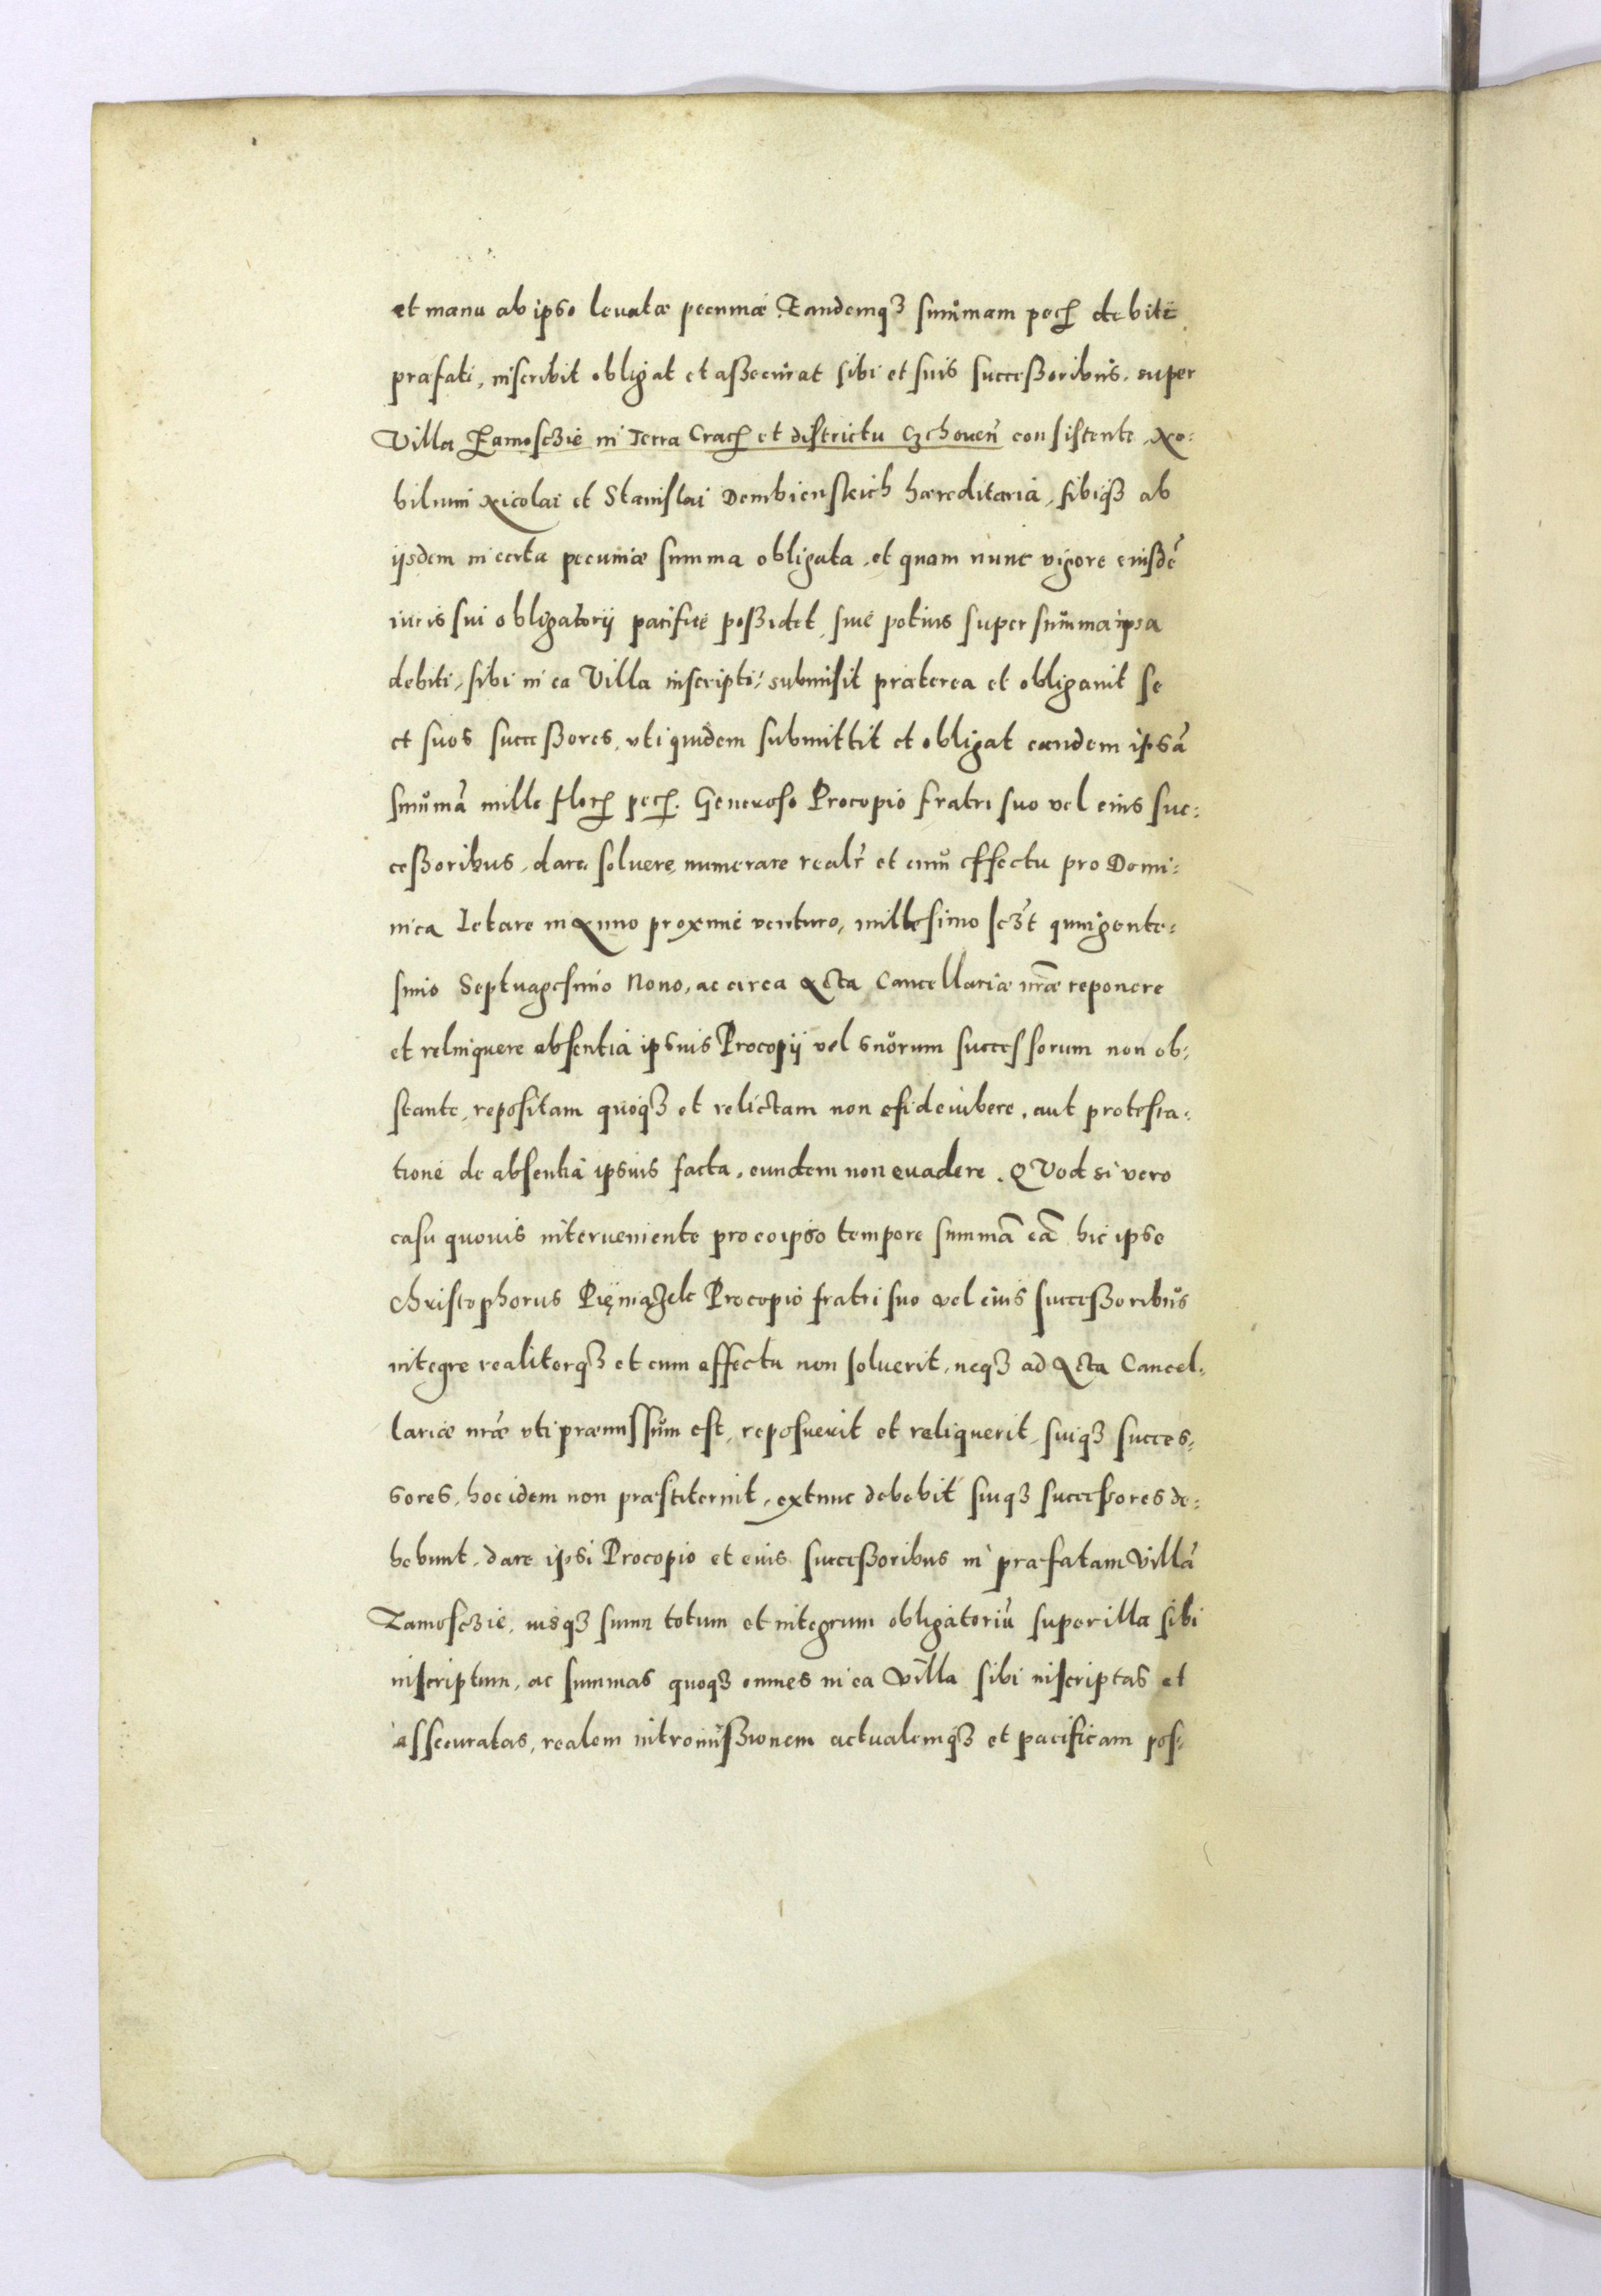 et manu ab ipso leuatæ pecuniæ Eandemqȝ summam pecꝝ debiti
præfati, inscribit obligat et assecurat sibi et suis successoribus, super
Villa Zamosczie in Terra Cracꝝ et districtu Czchouen̄ consistente No:
bilium Nicolai et Stanislai Dembienskich hæreditaria, sibiqȝ ab
ijsdem in certa pecuniæ summa obligata, et quam nunc vigore eiusdē
iuris sui obligatorij pacificè possidet, siuè potius super summa ipsa
debiti, sibi in ea Villa inscripti, submisit præterea et obligauit se
et suos successores, vti quidem submittit et obligat eandem ipsā
summā mille florꝝ pecꝝ. Generoso Procopio fratri suo vel eius suc:
cessoribus, dare soluere, numerare realr̄ et cum effectu pro Domi:
nica Letare in Anno proximè venturo, millesimo sczt quingente:
simo Septuagesimo Nono, ac circa Acta Cancellariæ nrāe reponere
et relinquere absentia ipsius Procopij vel suorum successorum non ob:
stante, repositam quoqȝ et relictam non efideiubere, aut protesta:
tione de absentia ipsius facta, eundem non euadere. QVod si vero
casu quouis interueniente pro eo ipso tempore summā eā hic ipse
Christophorus Pięniążek Procopio fratri suo vel eius successoribus
integre realiterqȝ et cum effectu non soluerit, neqȝ ad Acta Cancel:
lariæ nrāe vti præmissum est, reposuerit et reliquerit, suiqȝ succes:
sores, hoc idem non præstiterint, extunc debebit suiqȝ successores de:
bebunt, dare ipsi Procopio et eius successoribus in præfatam Villā
Zamosczie, iusqȝ suum totum et integrum obligatoriū super illa sibi
inscriptum, ac summas quoqȝ omnes in ea Villa sibi inscriptas et
assecuratas, realem intromissionem actualemqȝ et pacificam pos: